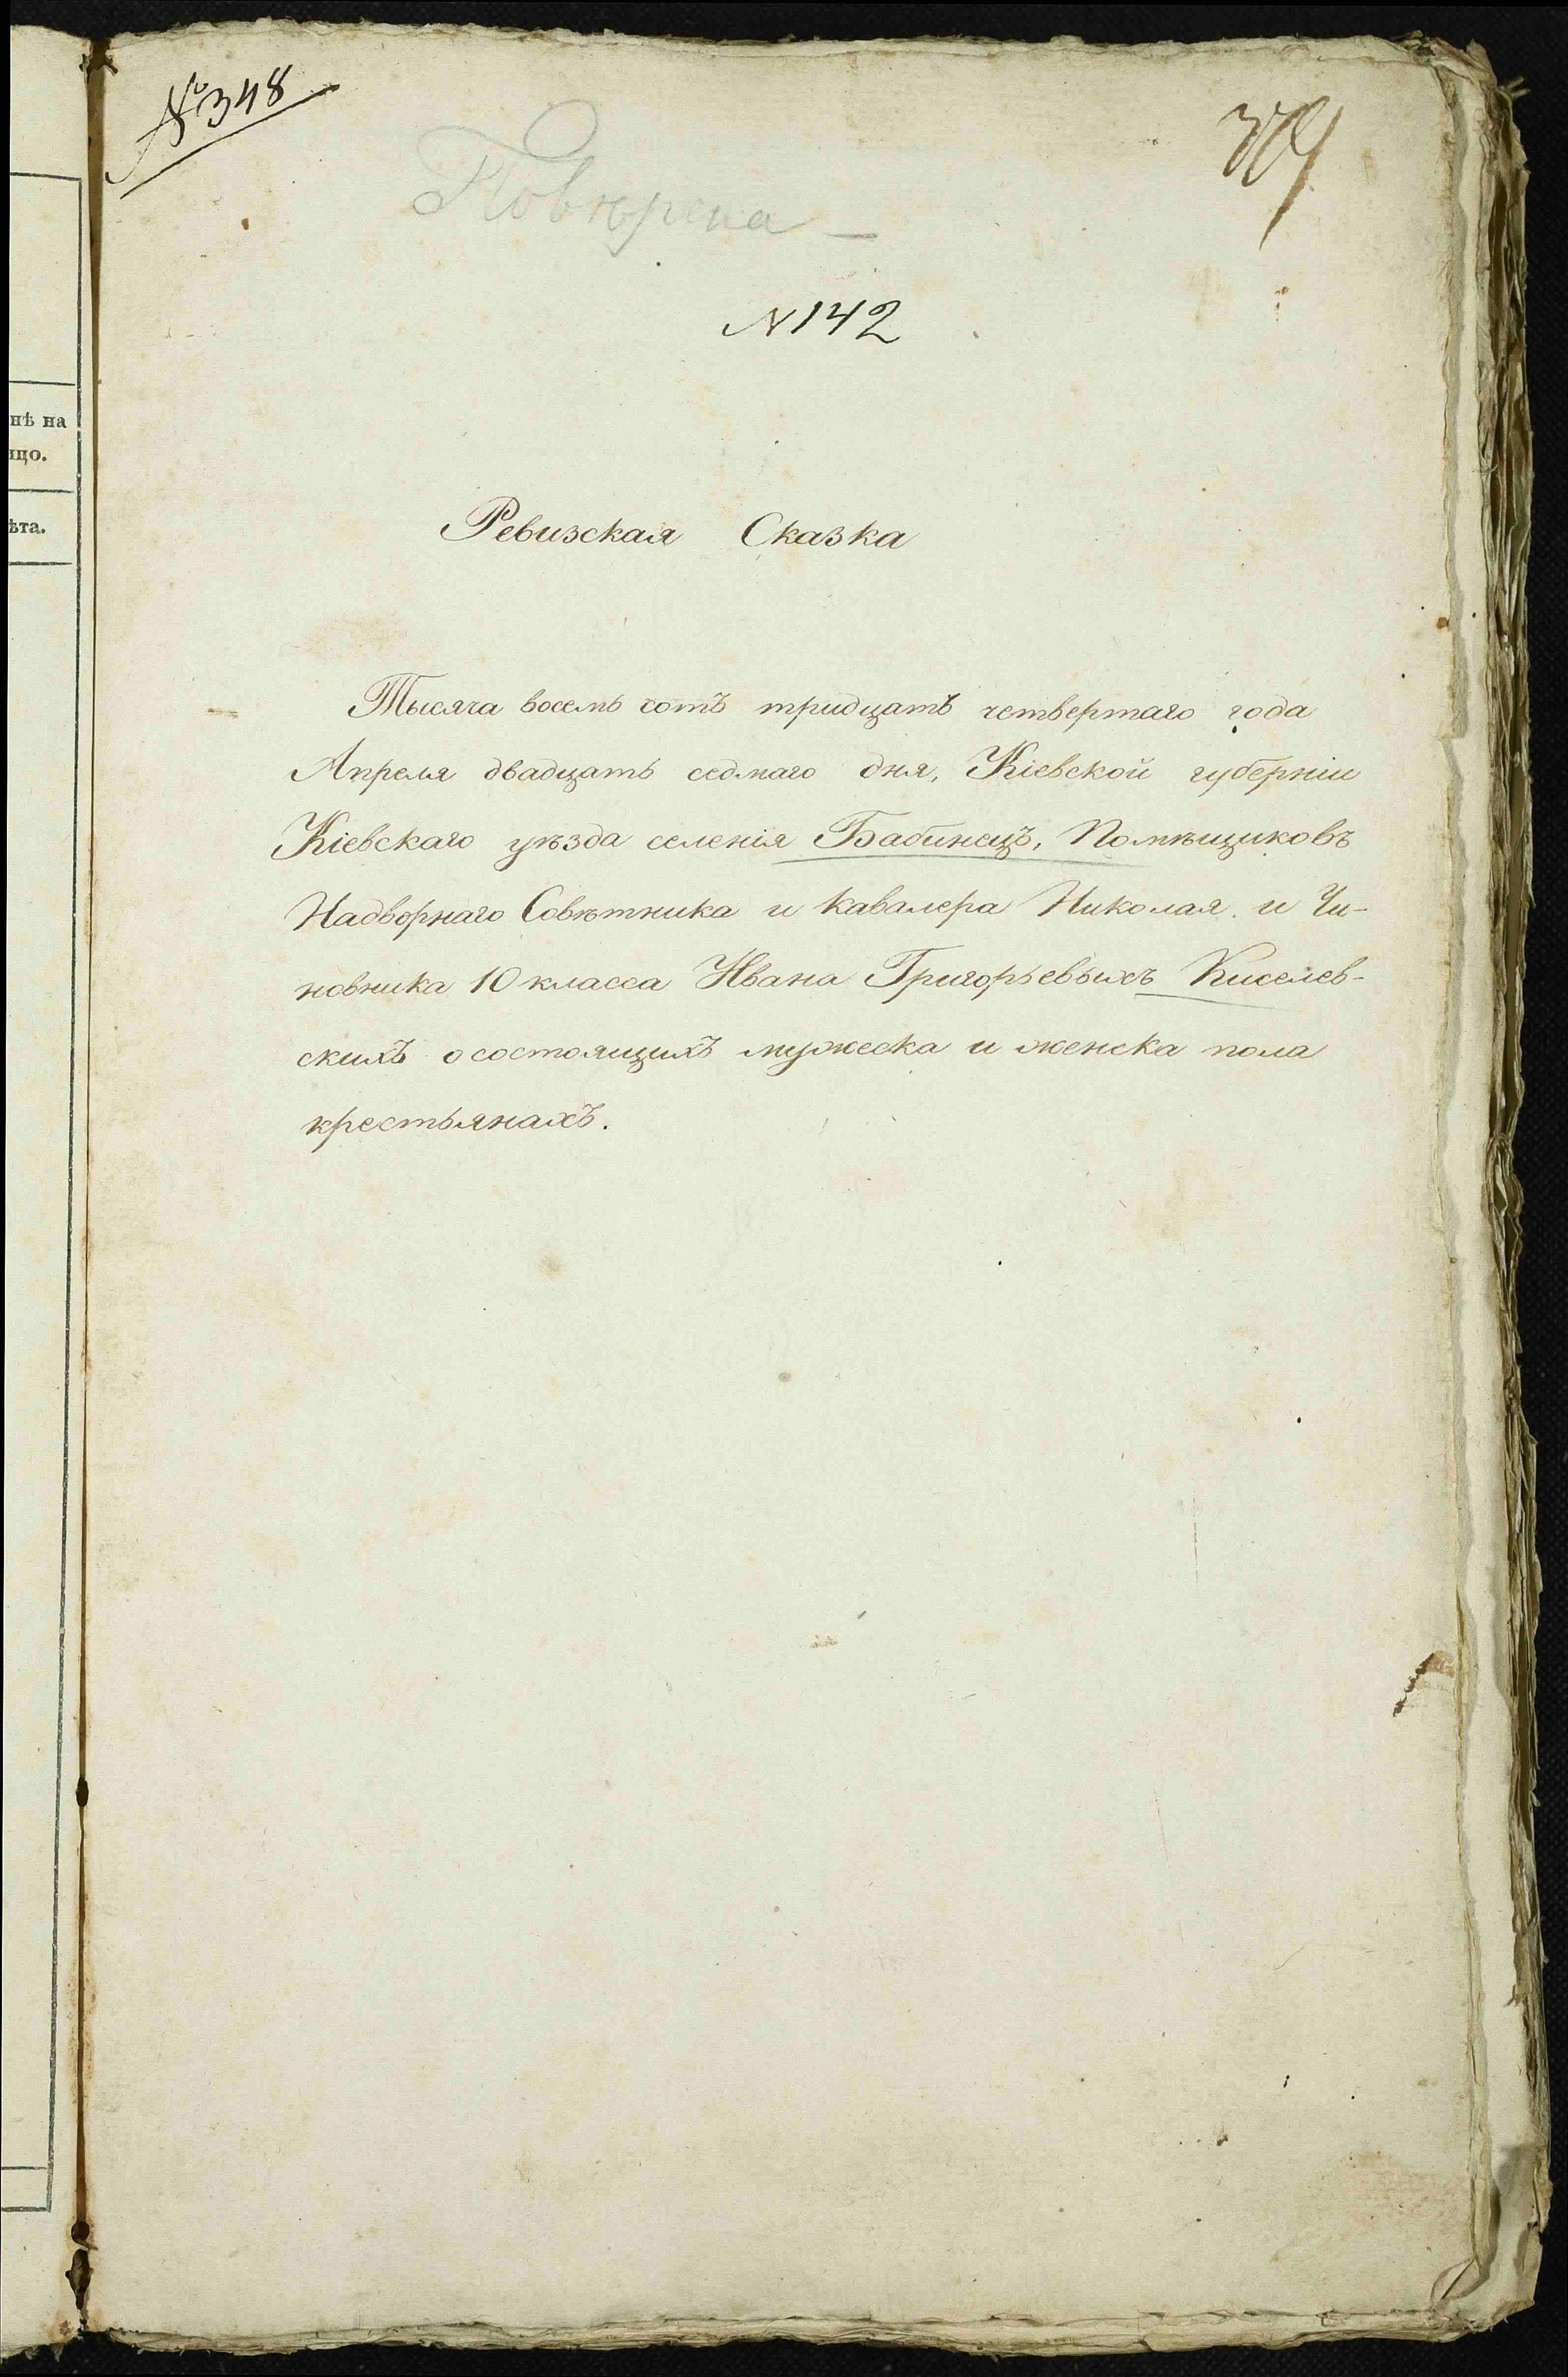 № 348
Повѣрена —
N 142
нѣ на
ицо.
ѣта.
Ревизская Сказка
Тысяча восемь сотъ тридцать четвертаго года
Апреля двадцать седмаго дня, Кіевской губерніи
Кіевскаго уѣзда селенія Бабинецъ, Помѣщиковъ
Надворнаго Совѣтника и Кавалера Николая и Чи-
новника 10 класса Ивана Григорьевыхъ Киселев-
скихъ о состоящихъ мужеска и женска пола
крестьянахъ.